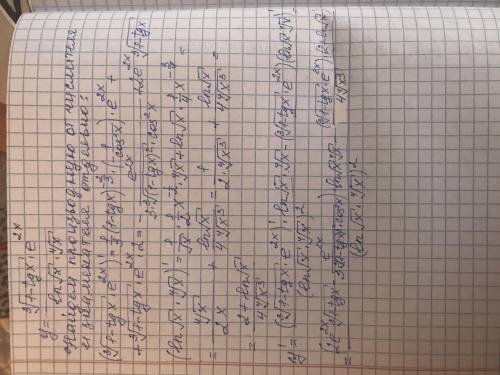 y = (∛(7-tgx) · e^(2x)) / (ln√x · ∜x)
Найдем производную от числителя
и знаменателя отдельно:
(∛(7-tgx) · e^(2x))' = 1/3 (7-tgx)^(-2/3) · (-1/cos²x) · e^(2x) +
+ ∛(7-tgx) · e^(2x) · 2 = - e^(2x) / (3·∛((7-tgx)²) · cos²x) + 2e^(2x) ∛(7-tgx)
(ln√x · ∜x)' = 1/√x · 1/2 x^(-1/2) · ∜x + ln√x · 1/4 x^(-3/4) =
= ∜x / 2x + ln√x / 4∜(x³) = 1 / 2·∜(x³) + ln√x / 4∜(x³) =
= (2+ln√x) / 4∜(x³)
y' = ((∛(7-tgx) · e^(2x))' · ln√x · ∜x - (∛(7-tgx) · e^(2x))(ln√x · ∜x)') / (ln√x · ∜x)²
= ((2e^(2x) ∛(7-tgx) - e^(2x) / (3∛((7-tgx)²) · cos²x)) ln√x ∜x - (∛(7-tgx) · e^(2x))(2+ln√x) / 4∜(x³)) / (ln√x · ∜x)²